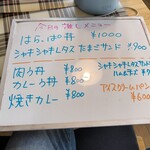 今月の推しメニュー
はらぺこ丼 ¥1000
シャキシャキレタス たまごサンド ¥900
肉う丼 ¥800
カレーう丼 ¥800
焼きカレー ¥800
シャキシャキレタス
ハム&
アイスクリーム
¥600